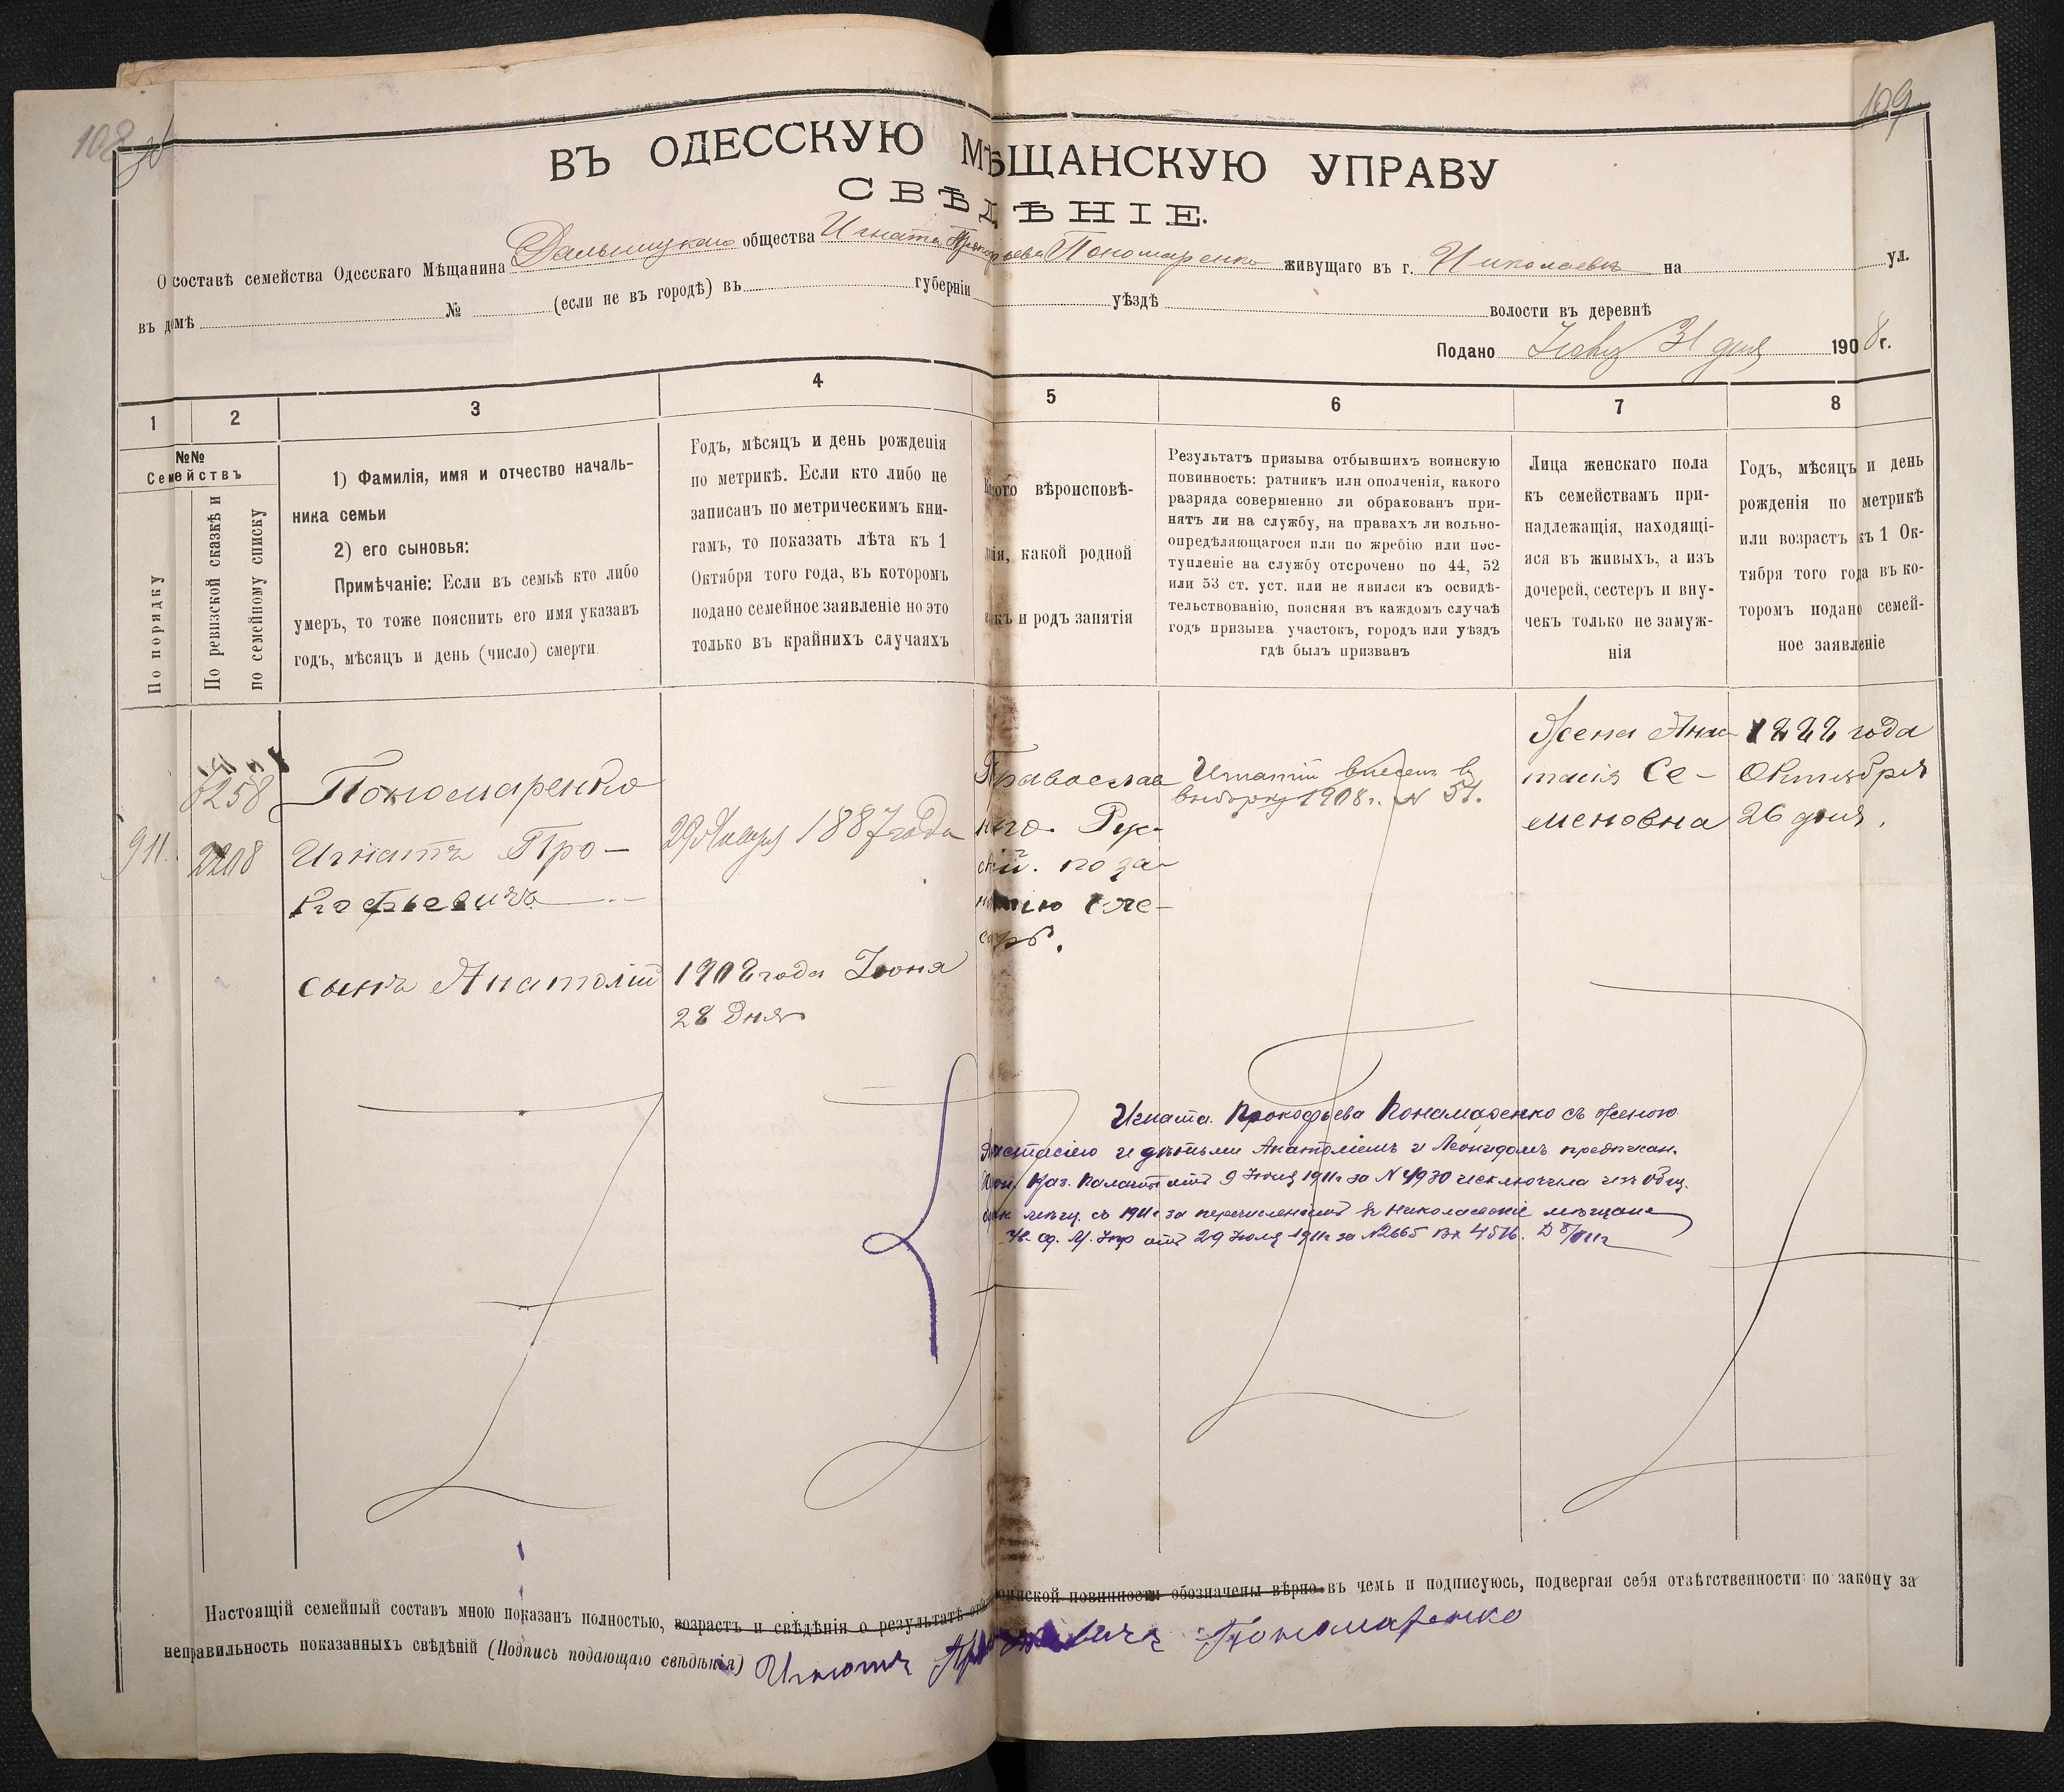 108
109
ВЪ ОДЕССКУЮ МѢЩАНСКУЮ УПРАВУ
СВѢДѢНІЕ.
О составѣ семейства Одесскаго Мѣщанина Дальницкаго общества Игната Прокофьева Пономаренко живущаго въ г. Николаевѣ на ул.
въ домѣ № (если не въ городѣ) въ губерніи уѣздѣ волости въ деревнѣ
Подано 31 дня 1908 г.
1 2 3 4 5 6 7 8
№№
Семействъ
По порядку
По ревизской сказкѣ и
по семейному списку
1) Фамилія, имя и отчество началь-
ника семьи
2) его сыновья:
Примѣчаніе: Если въ семьѣ кто либо
умеръ, то тоже пояснить его имя указавъ
годъ, мѣсяцъ и день (число) смерти
Годъ, мѣсяцъ и день рожденія
по метрикѣ. Если кто либо не
записанъ по метрическимъ кни-
гамъ, то показать лѣта къ 1
Октября того года, въ которомъ
подано семейное заявленіе но это
только въ крайнихъ случаяхъ
Какого вѣроисповѣ-
данія, какой родной
языкъ и родъ занятія
Результатъ призыва отбывшихъ воинскую
повинность: ратникъ или ополченія, какого
разряда совершенно ли обракованъ при-
нятъ ли на службу, на правахъ ли вольно-
опредѣляющагося или по жребію или пос-
тупленіе на службу отсрочено по 44, 52
или 53 ст. уст. или не явился къ освидѣ-
тельствованію, поясняя въ каждомъ случаѣ
годъ призыва участокъ, городъ или уѣздъ
гдѣ былъ призванъ
Лица женскаго пола
къ семействамъ при-
надлежащія, находящі-
яся въ живыхъ, а изъ
дочерей, сестеръ и вну-
чекъ только не замуж-
нія
Годъ, мѣсяцъ и день
рожденія по метрикѣ
или возрастъ къ 1 Ок-
тября того года въ ко-
торомъ подано семей-
ное заявленіе
911.
6258
2208
Пономаренко
Игнатъ Про-
кофьевичъ
сынъ Анатолій
29 Января 1887 года
1908 года Іюня
28 дня
Православ
наго. Рус-
скій. по за-
нятію сле-
сарь.
Игнатій внесен в
выборку 1908 г. № 51.
Жена Анас-
тасія Се-
меновна
1888 года
Октября
26 дня.
Игната Прокофьева Пономаренко съ женою
Анастасіею и дѣтьми Анатоліемъ и Леонидомъ предписан.
Каз. Палаты отъ 9 Іюня 1911 г за № 4930 исключена изъ общ.
мѣщ. съ 1911 г за перечисленіемъ въ Николаевскіе мѣщане
отъ 29 Іюля 1911 г за № 2665 Вх 4516.
Настоящій семейный составъ мною показанъ полностью, возрастъ и свѣдѣнія о результатѣ воинской повинности обозначены вѣрно въ чемъ и подписуюсь, подвергая себя отвѣтственности по закону за
неправильность показанныхъ свѣдѣній (Подпись подающаго свѣдѣнія) Игнатъ Пономаренко